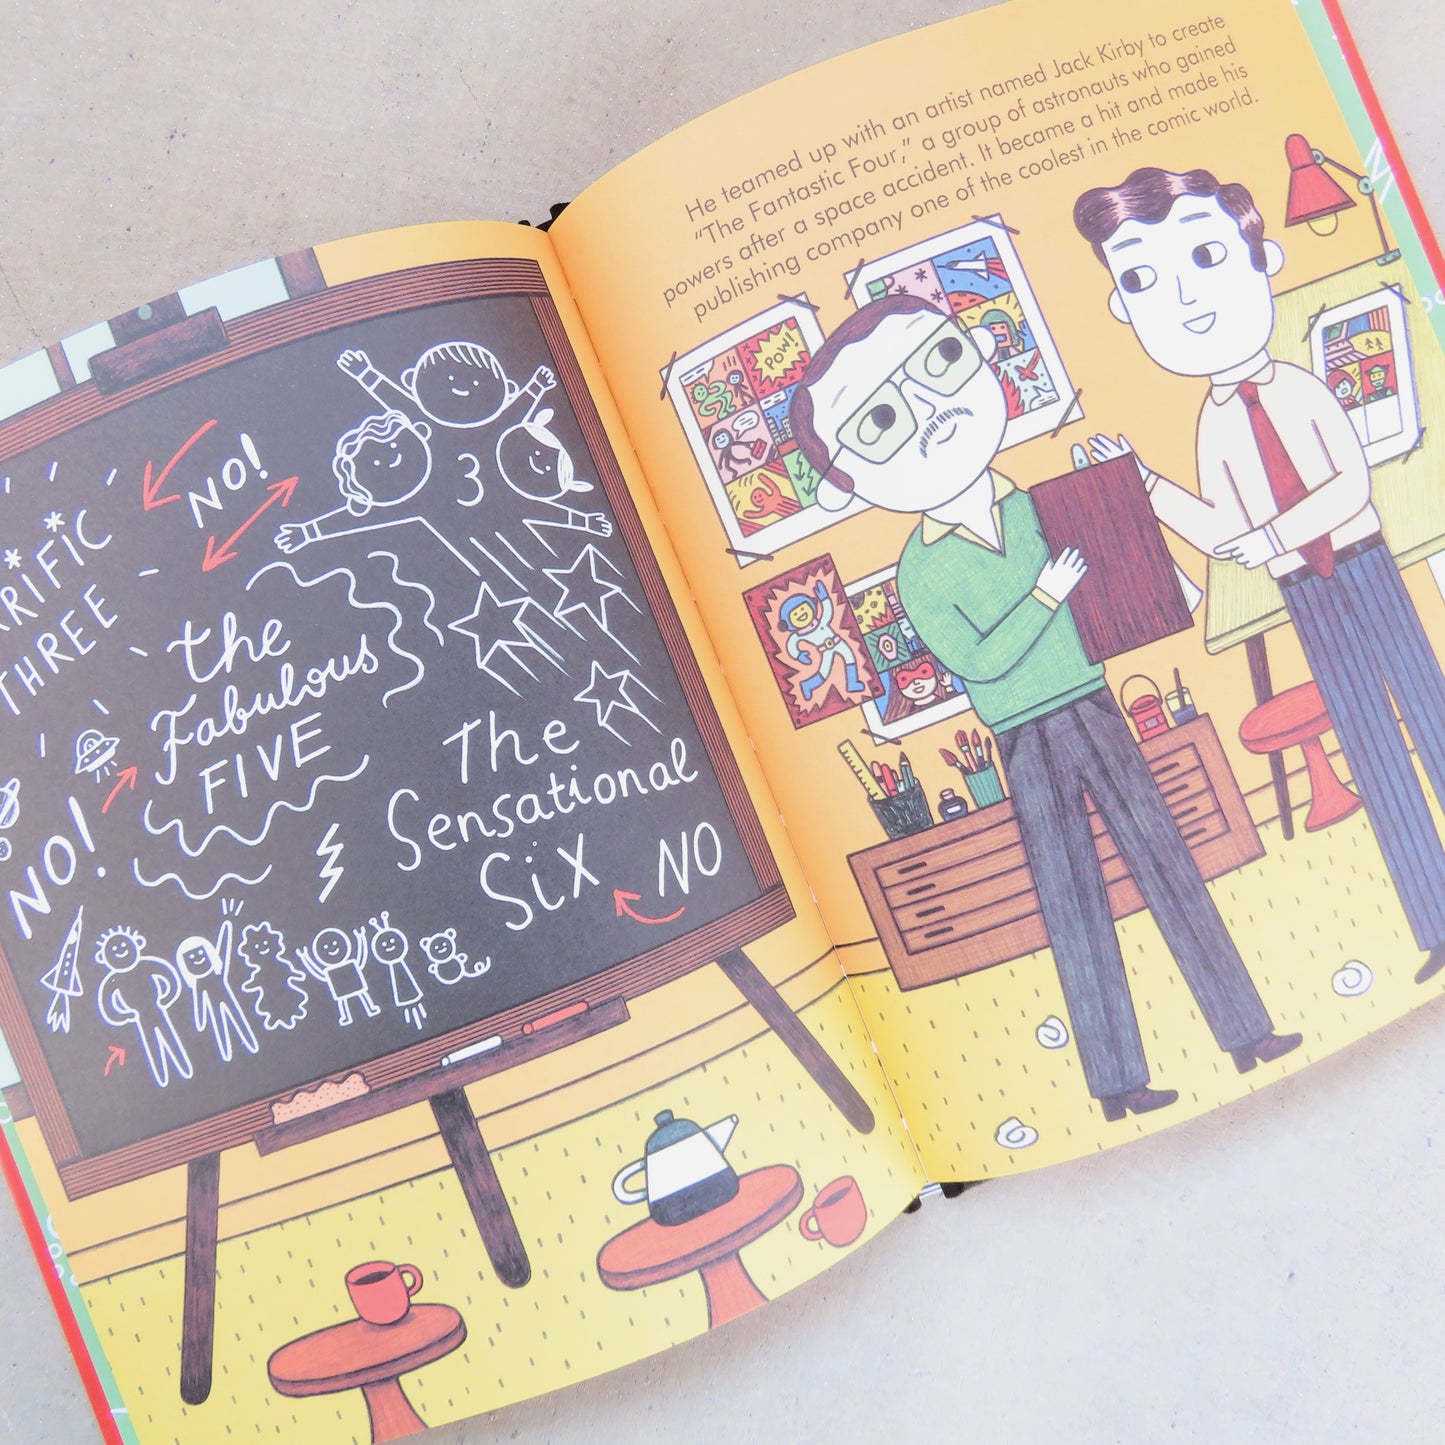 NO!
THREE
the
Fabulous
FIVE
3
NO!
The
Sensational
Six
NO
He teamed up with an artist named Jack Kirby to create
"The Fantastic Four," a group of astronauts who gained
powers after a space accident. It became a hit and made his
publishing company one of the coolest in the comic world.
POW!